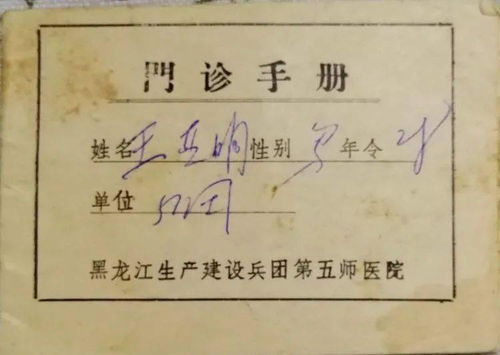 門诊手册
姓名 王亚明 性别 男 年令 21
单位 52团
黑龙江生产建设兵团第五师医院